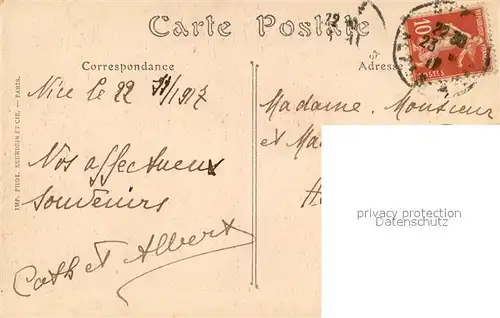 Carte Postale
Correspondance
Adresse
10
POSTES
Nice le 22
Nos affectueux
souvenirs
Cath et Albert
Madame, Monsieur
et Ma
privacy protection
Datenschutz
IMP. PHOT. NEURDEIN ET CIE. — PARIS.